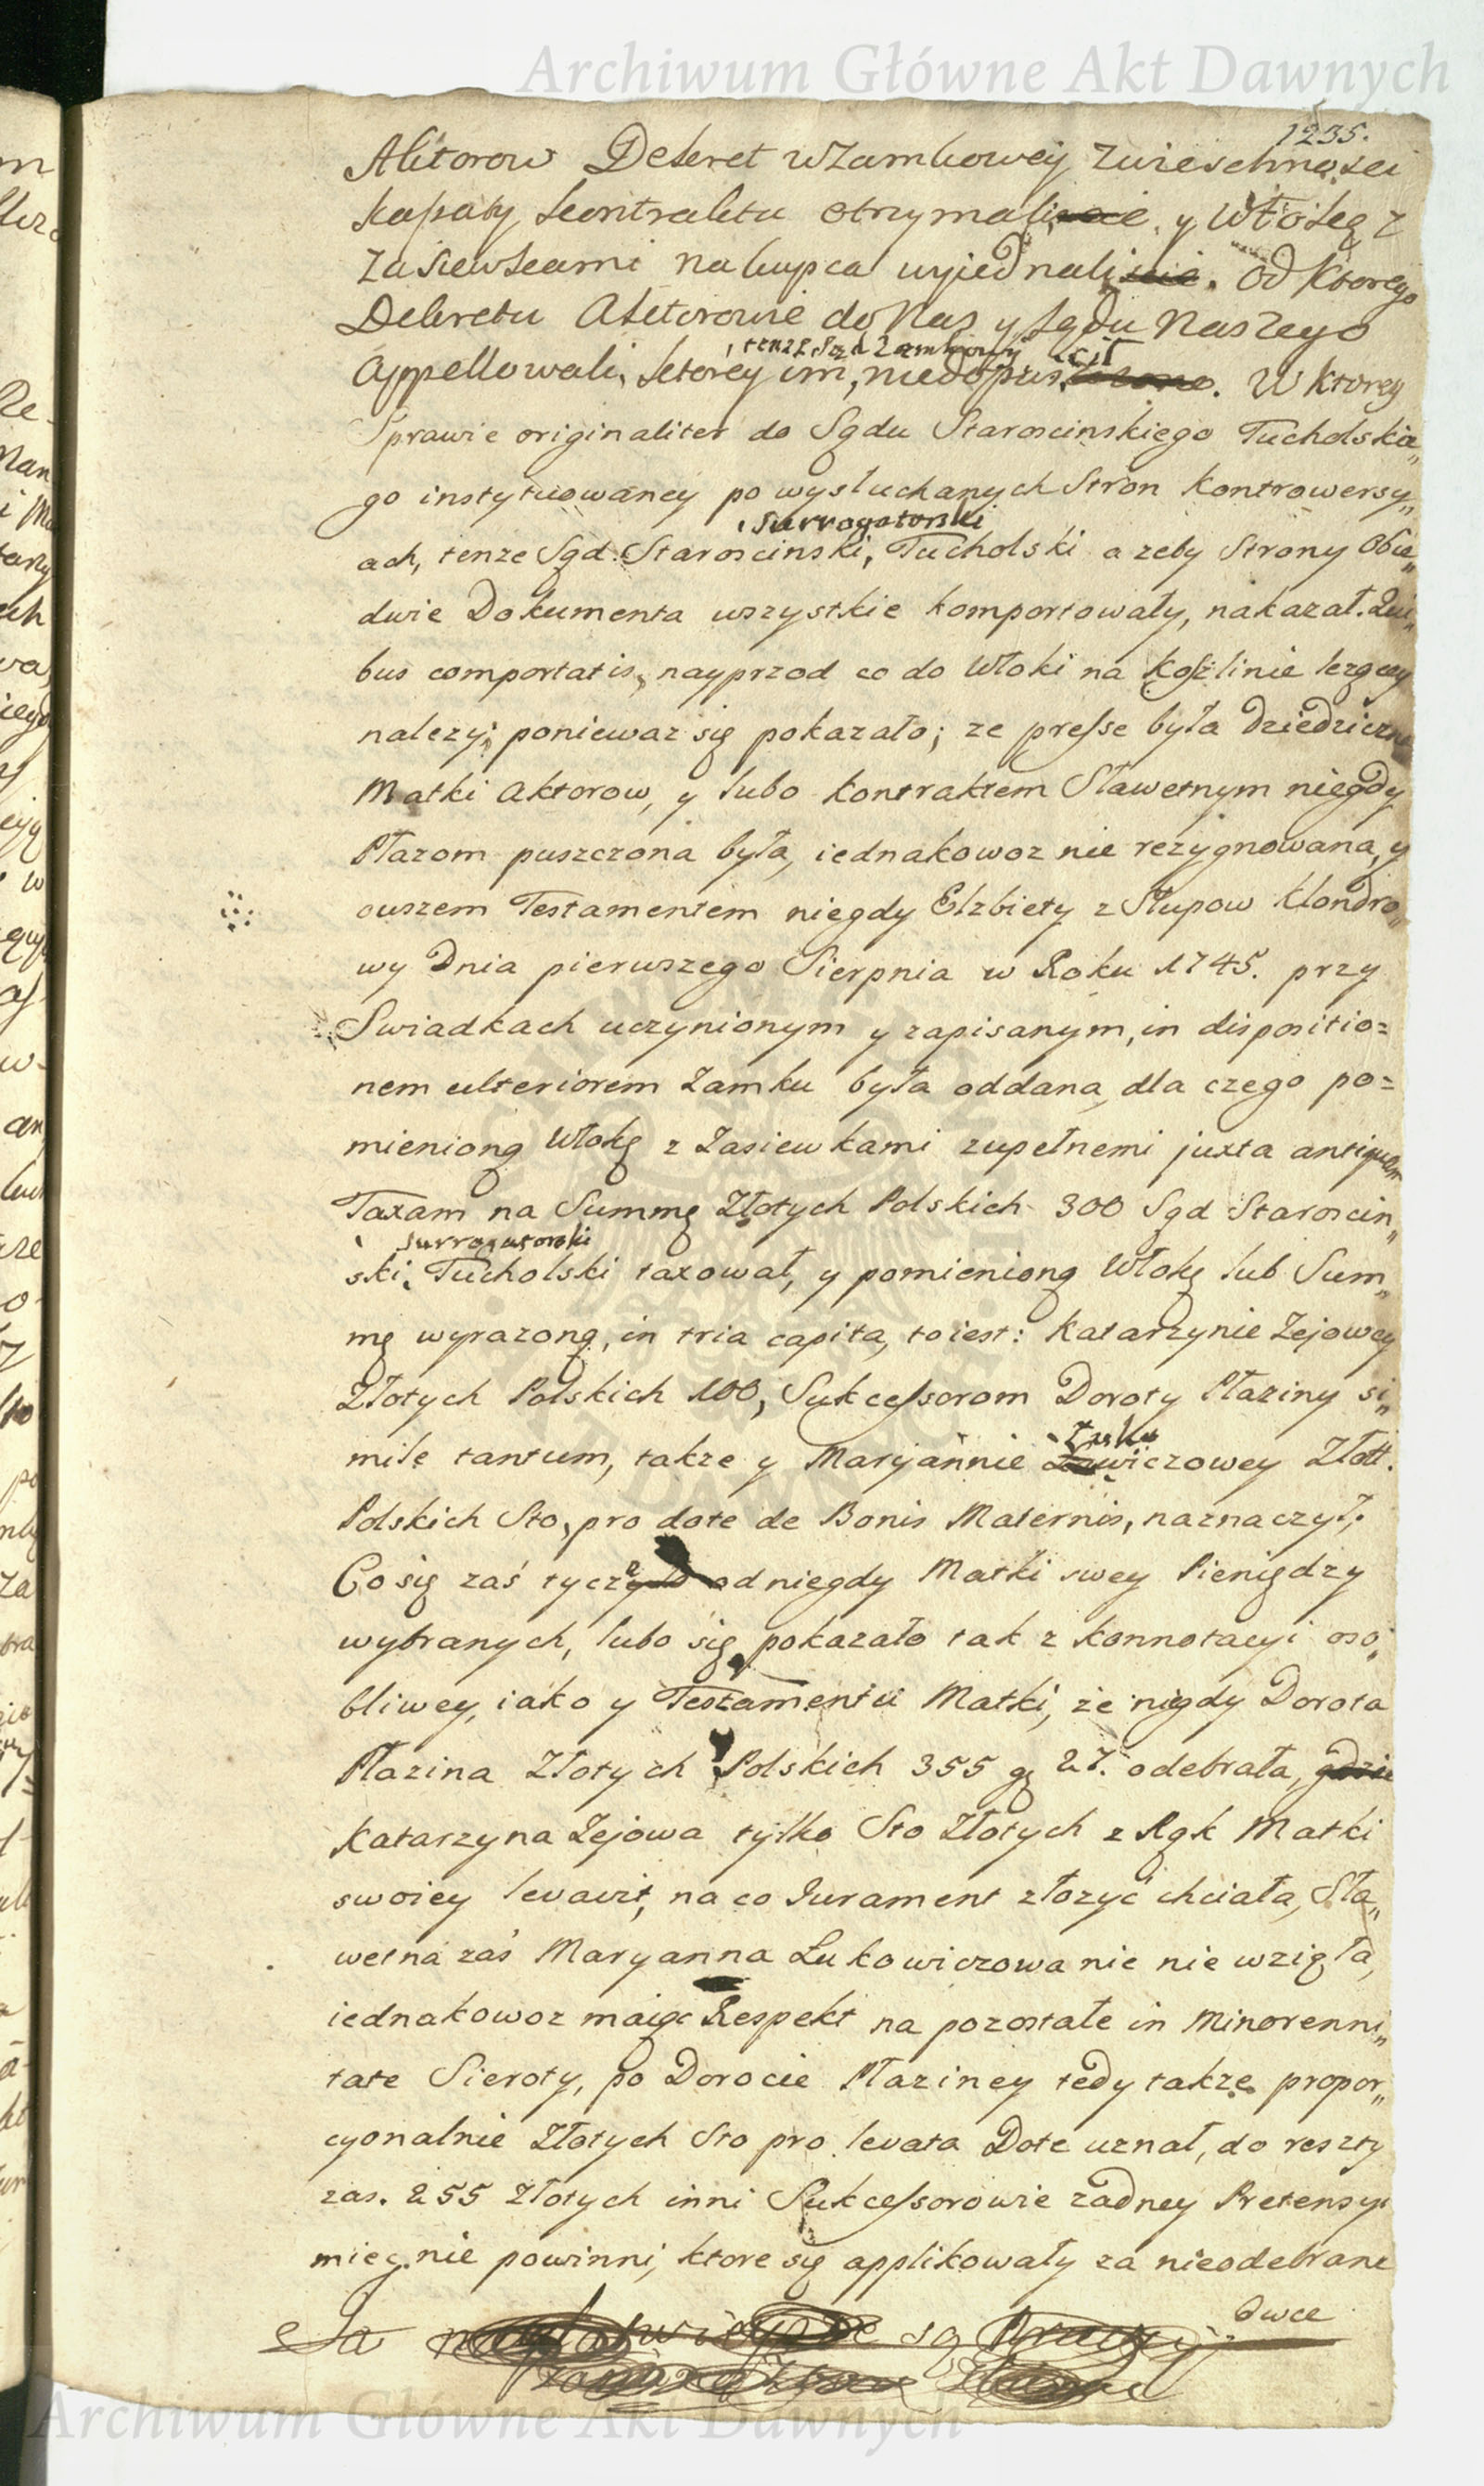 Archiwum Główne Akt Dawnych
1235.
Aktorow Dekret w Zamkowey Zwieschnosci
kassaty kontraktu otrzymali, y Włokę z
zasiewkami na kupca wyjednali. od ktorego
Dekretu Aktorowie do Nas y Sądu Naszego
tenze Sąd Zamkowy cił
Appellowali, ktorey im, niedopus. W ktorey
Sprawie originaliter do Sądu Staroscinskiego Tucholskie„
go instytuowaney po wysłuchanych Stron kontrowersy„
surrogatorski
ach, tenze Sąd Staroscinski, Tucholski azeby Strony Obie„
dwie Dokumenta wszystkie komportowały, nakazał. Qui„
bus comportatis, nayprzod co do Włoki na Koźlinie lezącey
nalezy; poniewaz się pokazało; ze presse była Dziedziczna
Matki Aktorow, y lubo kontraktem Sławetnym niegdy
Płazom puszczona była, iednakowoz nie rezygnowana, y
ouszem Testamentem niegdy Elzbiety z Słupow Klondro„
wy Dnia pierwszego Sierpnia w Roku 1745. przy
Swiadkach uczynionym y zapisanym, in dispositio=
nem ulteriorem Zamku była oddana, dla czego po=
mienioną Włokę z Zasiewkami zupełnemi juxta antiquam
Taxam na Summę Złotych Polskich 300 Sąd Staroscin„
surrogatorski
ski, Tucholski taxował, y pomienioną Włokę lub Sum„
mę wyrazoną, in tria capita, to iest: Katarzynie Zejowey
Złotych Polskich 100, Sukcessorom Doroty Płaziny si„
Łuko
mile tantum, takze y Maryannie wiczowey Złott.
Polskich Sto, pro dote de Bonis Maternis, naznaczył;
Co się zaś tycze od niegdy Matki swey Pieniędzy
wybranych, lubo się pokazało tak z konnotacyi oso„
bliwey, iako y Testamentu Matki, że nigdy Dorota
Płazina Złotych Polskich 355 gę 21. odebrała, gdzie
Katarzyna Zejowa tylko Sto Złotych z Rąk Matki
swoiey levavit, na co Jurament złozyć chciała, Sła„
wetna zaś Maryanna Łukowiczowa nic nie wzięła,
iednakowoz maiąc Respekt na pozostałe in Minorenni„
tate Sieroty, po Dorocie Płaziney tedy takze propor„
cyonalnie Złotych Sto pro levata Dote uznał, do reszty
zas. 255 Złotych inni Sukcessorowie zadney Pretensyi
miec nie powinni, ktore się applikowały za nieodebrane
dwce
są
Archiwum Główne Akt Dawnych